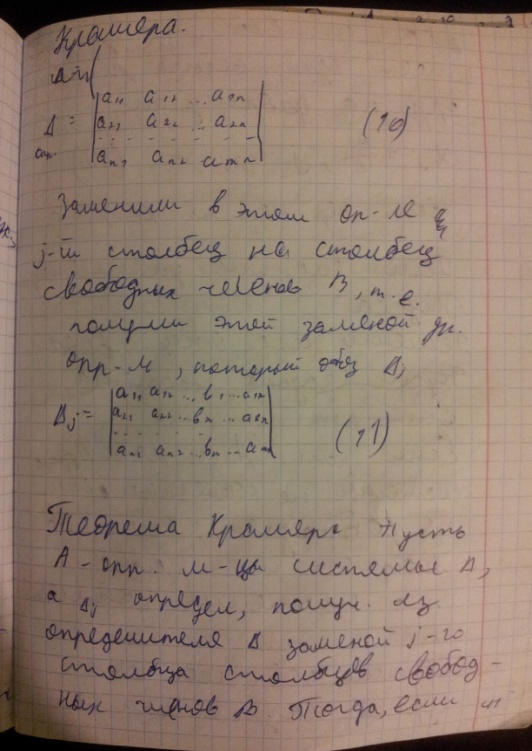 Крамера.
Δ = |a₁₁ a₁₂ ... a₁ₙ|
|a₂₁ a₂₂ ... a₂ₙ| (10)
|aₙ₁ aₙ₂ aₘₙ|
Заменим в этом оп-ле
j-й столбец на столбец
свободных членов B, т.е.
получим этой заменой др.
опр-ль, который обоз Δj
Δj = |a₁₁ a₁₂ ... b₁ ... a₁ₙ|
|a₂₁ a₂₂ ... bₙ ... a₂ₙ| (11)
|aₙ₁ aₙ₂ ... bₙ ... aₙₙ|
Теорема Крамера Пусть
Δ - опр. м-цы системы A,
а Δj определ, получ. из
определителя Δ заменой j-го
столбца столбцом свобод-
ных членов B. Тогда, если